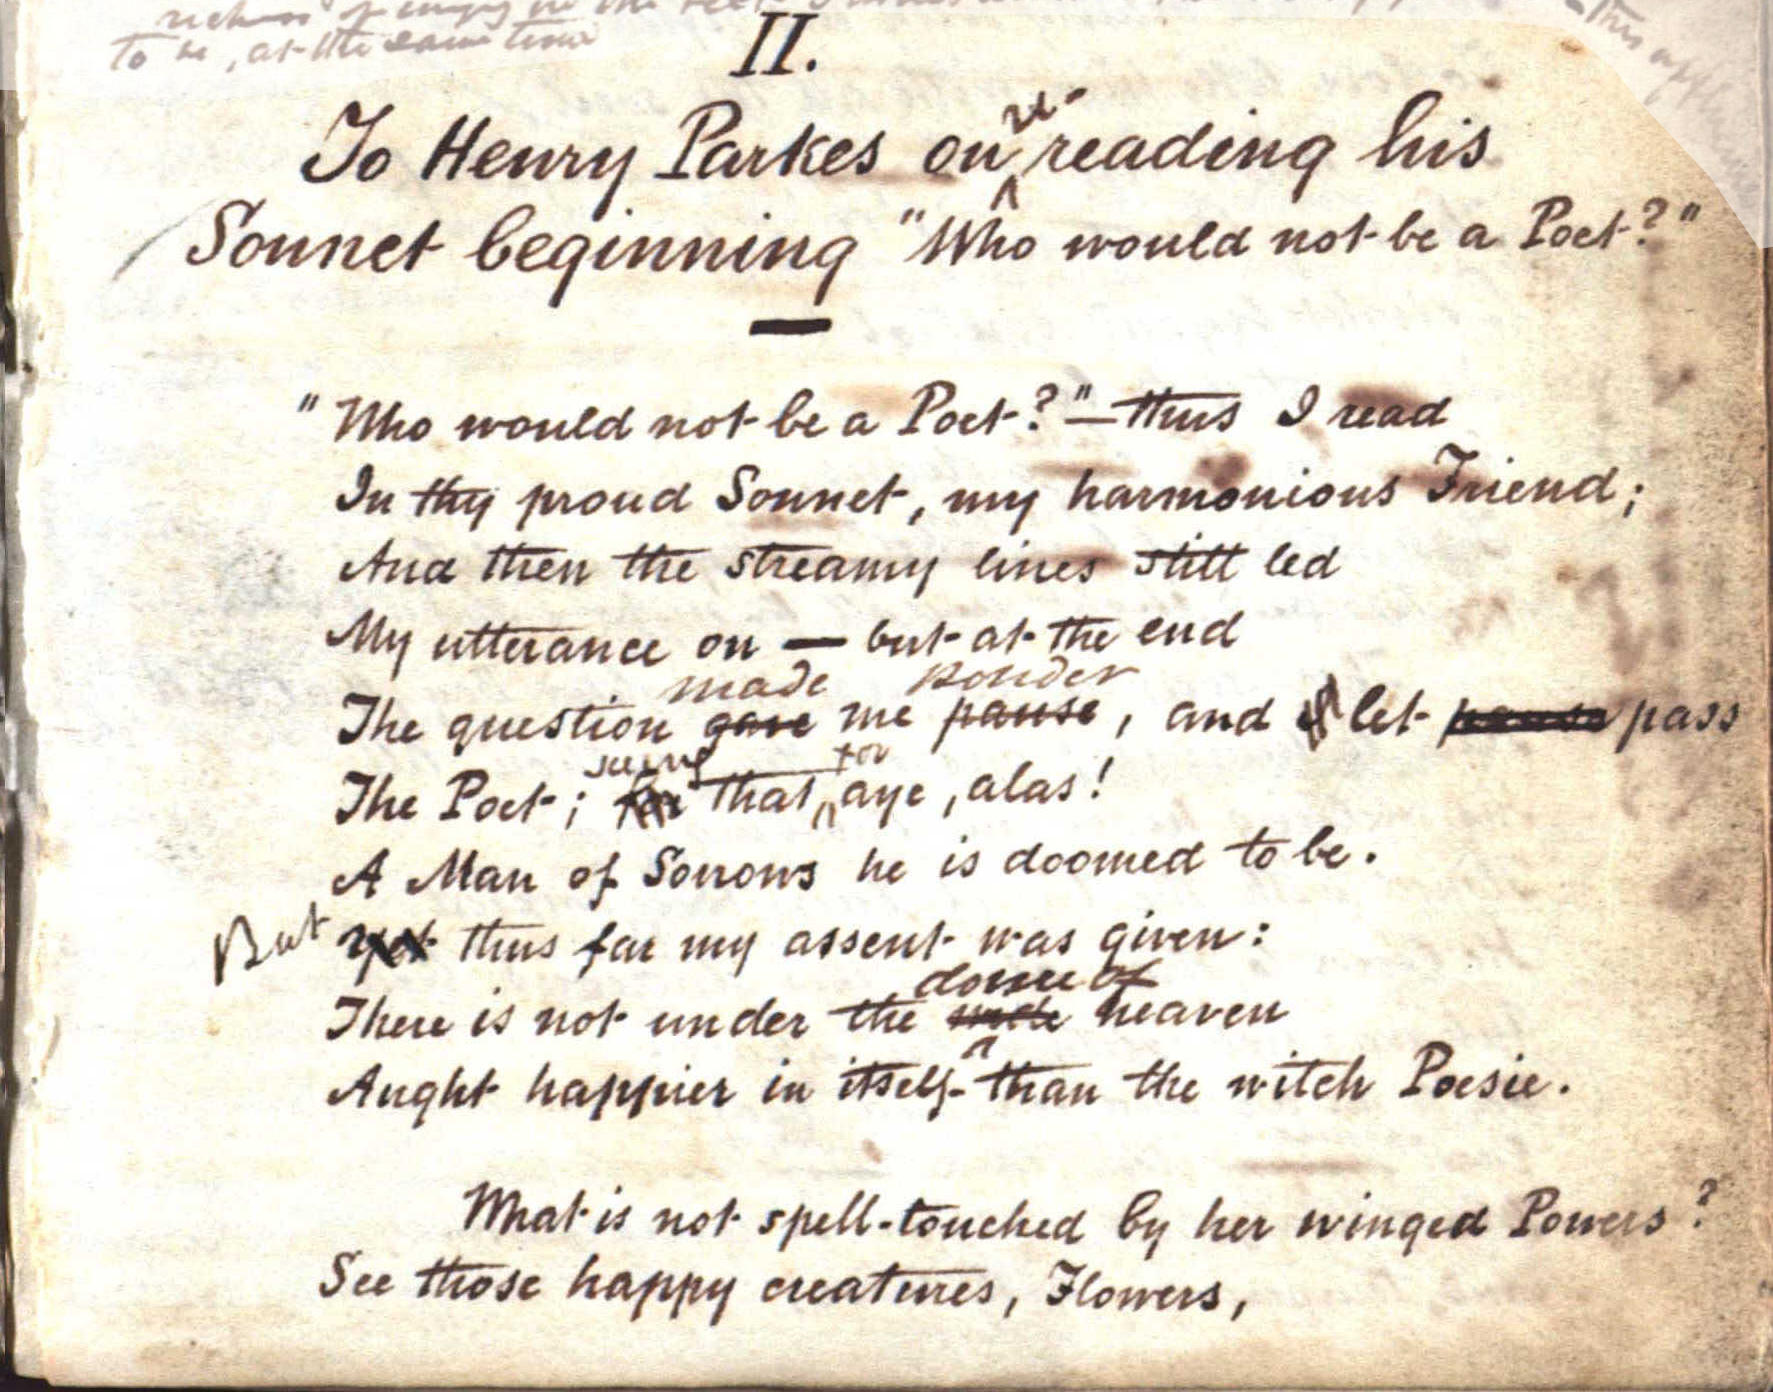 to be, at the same time
II.
To Henry Parkes on re-reading his
Sonnet beginning "Who would not be a Poet?"
"Who would not be a Poet?" — thus I read
In thy proud Sonnet, my harmonious Friend;
And then the streamy lines still led
My utterance on — but at the end
made ponder
The question gave me pause, and let pause pass
seeing for
The Poet; for that aye, alas!
A Man of Sorrows he is doomed to be.
But yet thus far my assent was given:
dome of
There is not under the wide heaven
Aught happier in itself than the witch Poesie.
What is not spell-touched by her winged Powers?
See those happy creatures, Flowers,